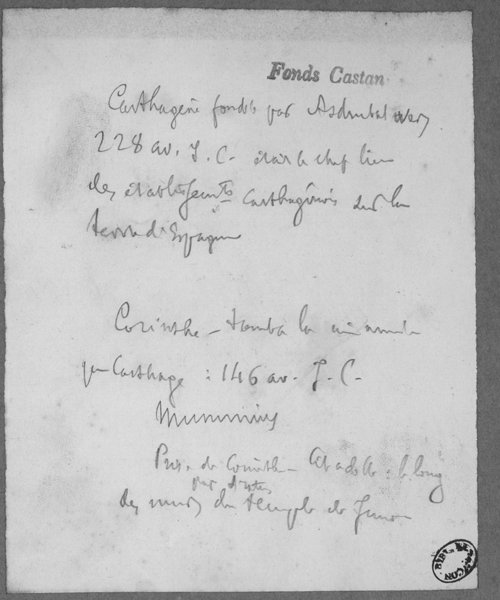 Fonds Castan
Carthagène fondée par Asdrubal vers
228 av. J. C. était le chef lieu
des établissemts Carthaginois sur la
terre d'Espagne
Corinthe - tomba la même année
que Carthage : 146 av. J. C.
Mummius
Prise de Corinthe - le long
par
des murs du temple de Junon
BIBL. DE BESANÇON